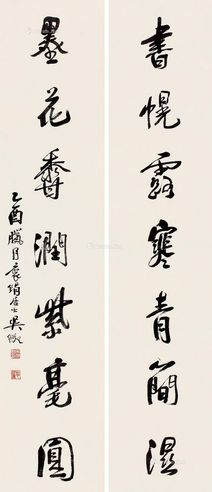 書幌露寒青簡濕
墨花香潤紫毫圓
乙酉臘月袁綃居士吳徵